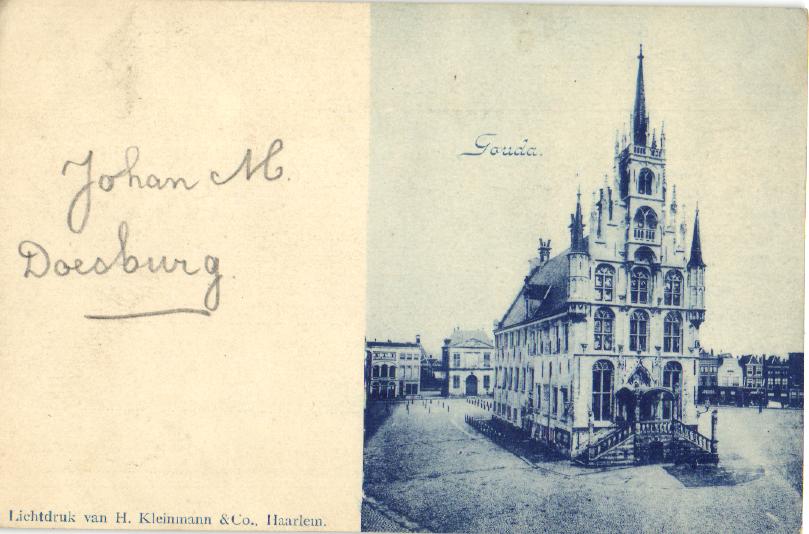 Johan M.
Doesburg.
Gouda.
Lichtdruk van H. Kleinmann &Co., Haarlem.